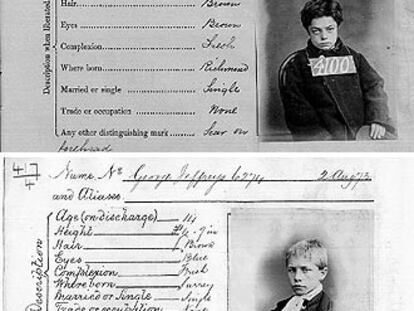 Description when liberated.
Hair Brown
Eyes Brown
Complexion Fresh
Where born Richmond
Married or single Single
Trade or occupation None
Any other distinguishing mark Scar on
forehead
4100
417/4
Name, No George Jeffreys 6274 2 Aug 73
and Aliases
Description
Age (on discharge) 14
Height
Hair Brown
Eyes Blue
Complexion Fresh
Where born Surrey
Married or Single Single
Trade or occupation